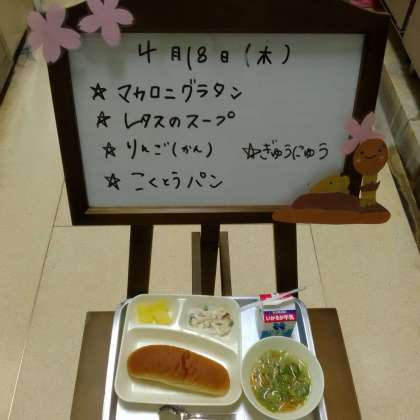 4月18日(木)
☆ マカロニグラタン
☆ レタスのスープ
☆ りんご(かん) ☆ぎゅうにゅう
☆ こくとうパン
いかるが牛乳